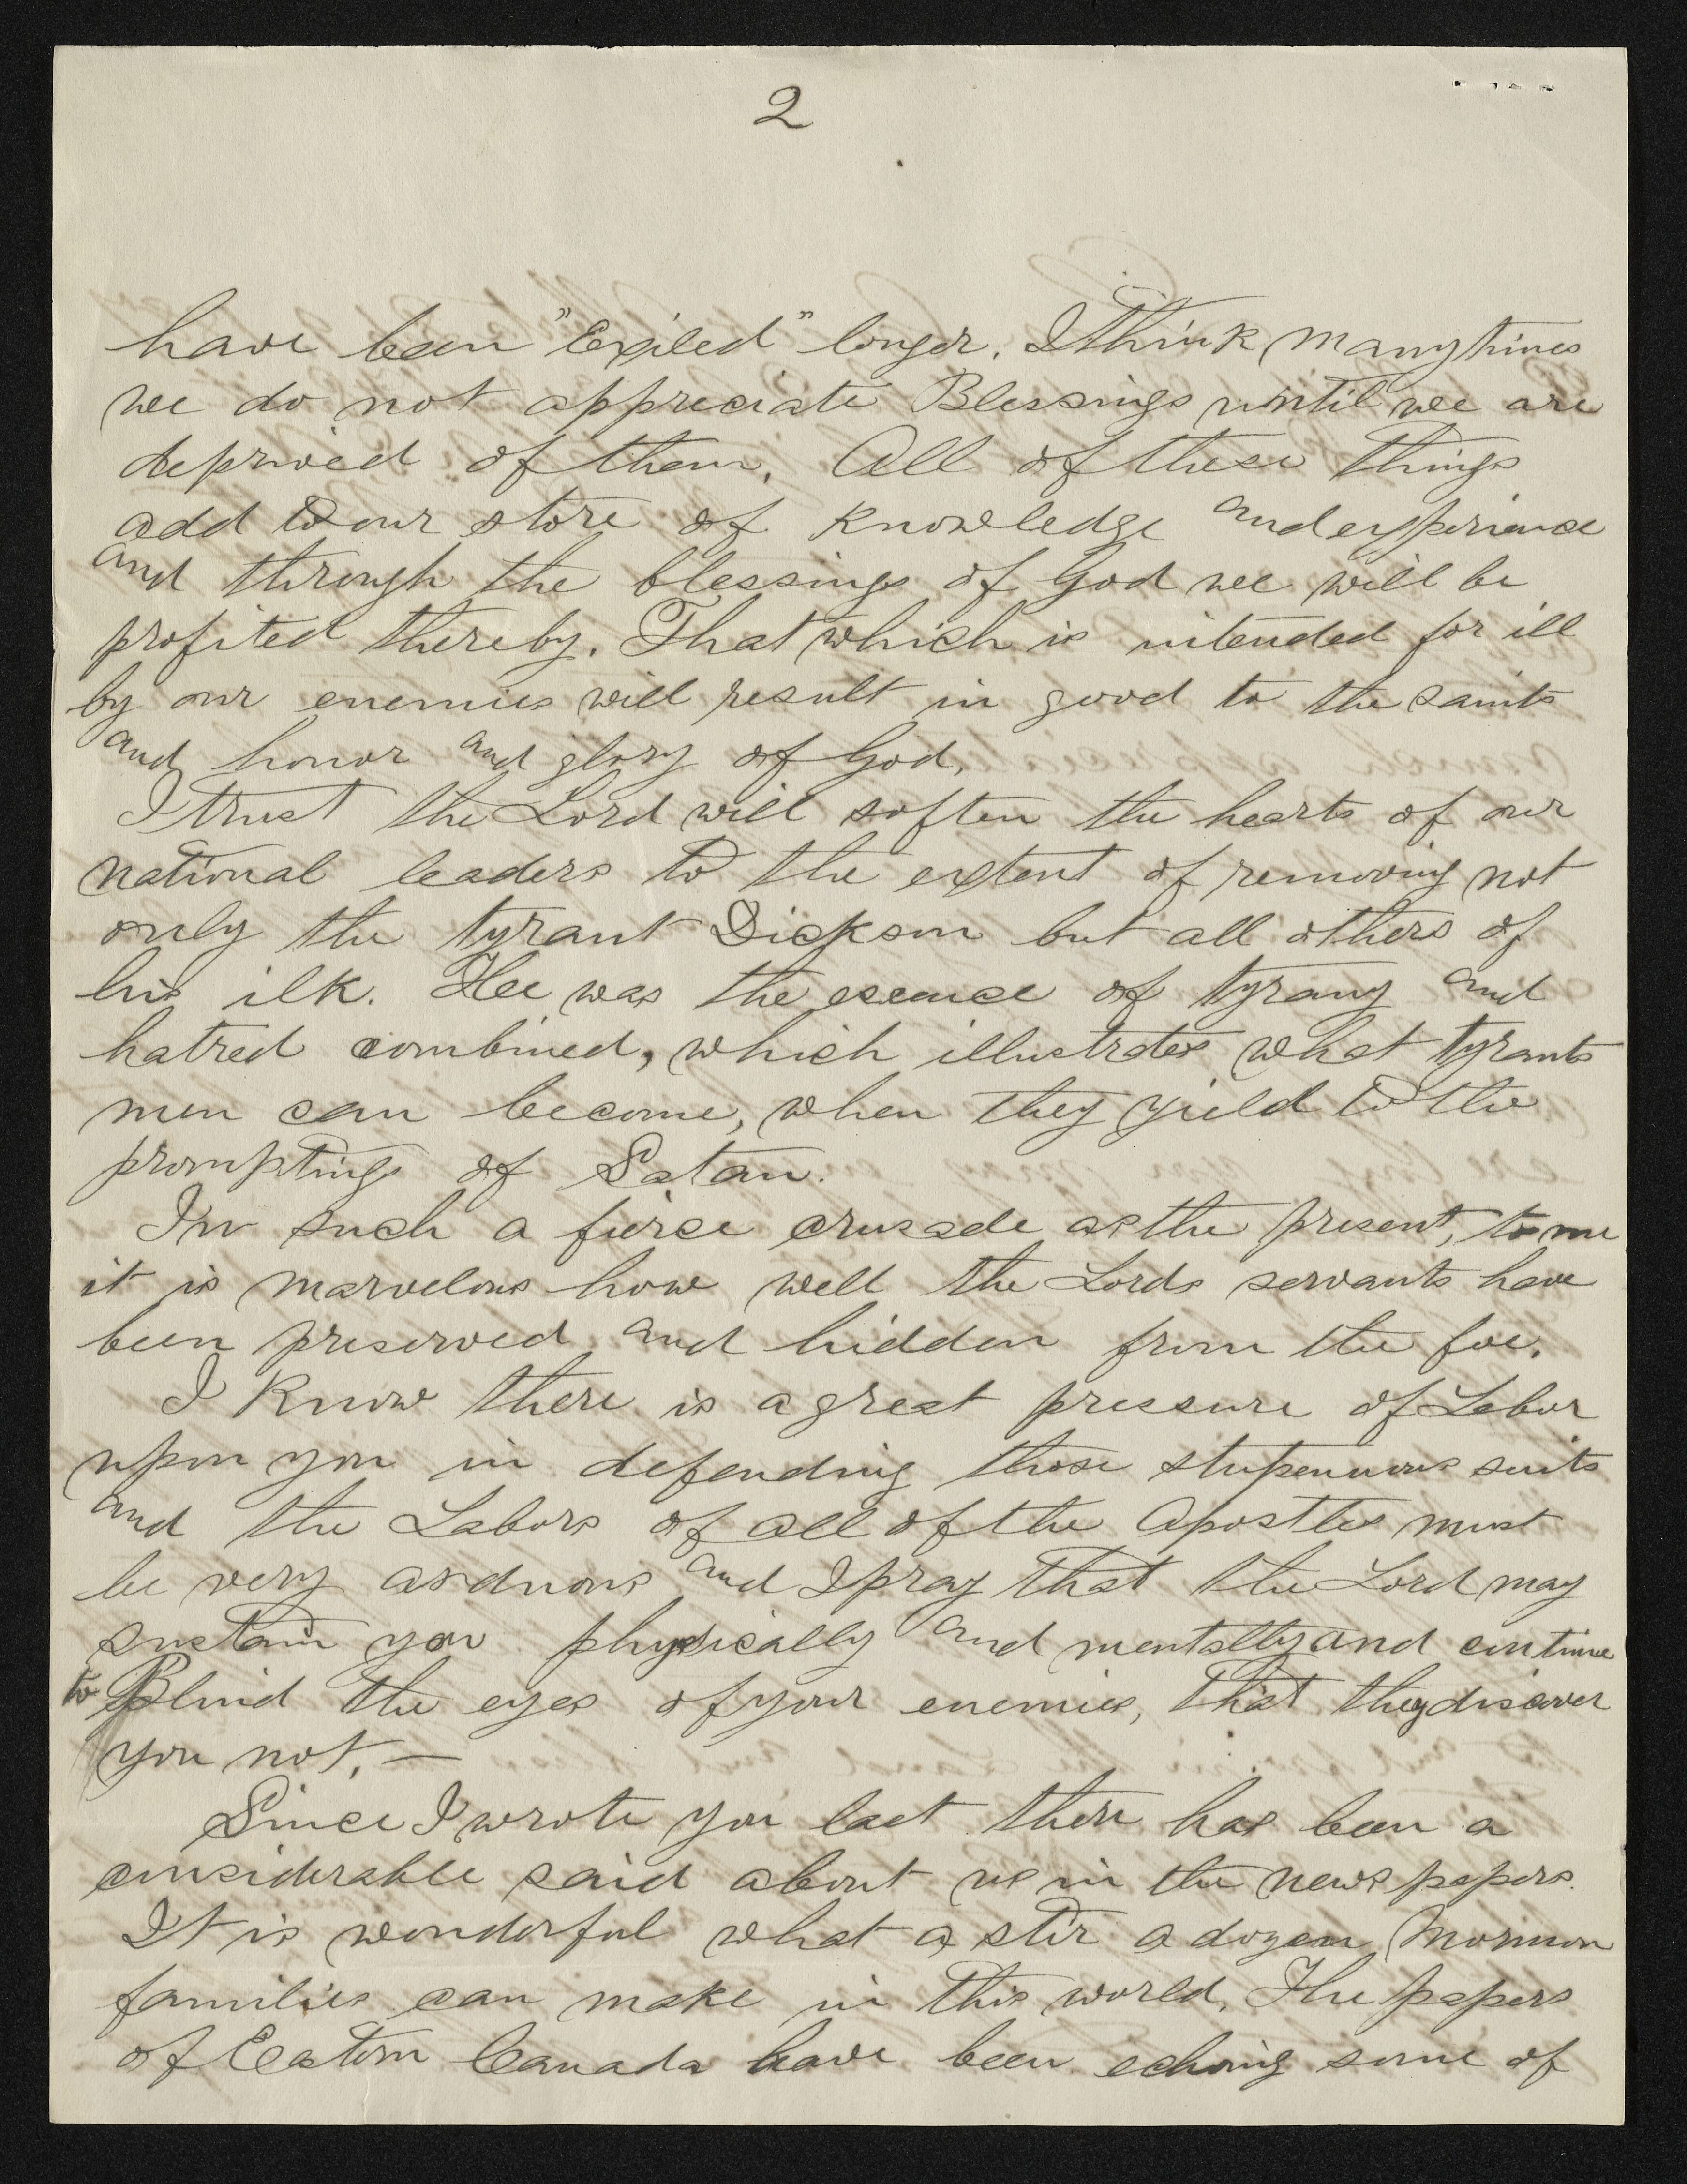 2
have been "Exiled" longer. I think many times
we do not appreciate Blessings until we are
deprived of them. All of these things
add to our store of knowledge and experience
and through the blessings of God we will be
profited thereby. That which is intended for ill
by our enemies will result in good to the saints
and honor and glory of God.
I trust the Lord will soften the hearts of our
national leaders to the extent of removing not
only the tyrant Dickson but all others of
his ilk. Hee was the esence of tyrany and
hatred combined, which illustrates what tyrants
men can become, when they yield to the
promptings of Satan.
In such a fierce crusade as the present, to me
it is marvelous how well the Lords servants have
been preserved and hidden from the foe.
I know there is a great pressure of Labor
upon you in defending those stupenuous suits
and the Labors of all of the Apostles must
be very arduous and I pray that the Lord may
sustain you physically and mentally and continue
to Blind the eyes of your enemies, that they discover
you not. —
Since I wrote you last there has been a
considerable said about us in the news papers.
It is wonderful what a stir a dozen Mormon
families can make in this world. The papers
of Eastern Canada have been echoing some of